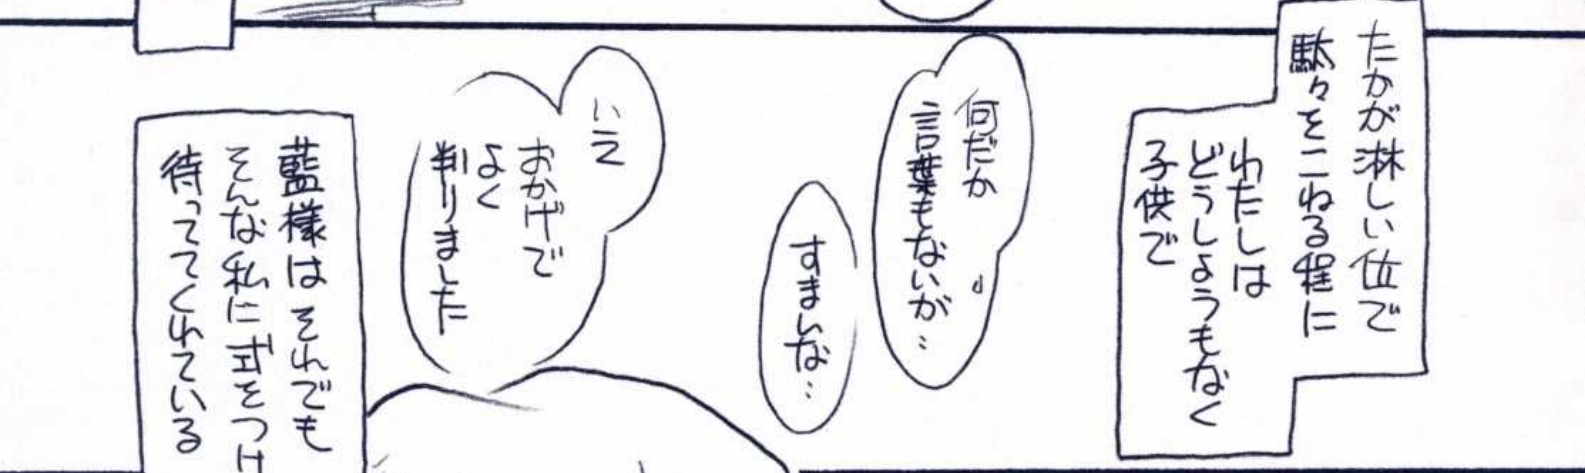 たかが淋しい位で
駄々をこねる程に
わたしは
どうしようもなく
子供で
何だか
言葉もないが…
すまんな…
いえ
おかげで
よく
判りました
藍様はそれでも
そんな私に式をつけ
待っててくれている